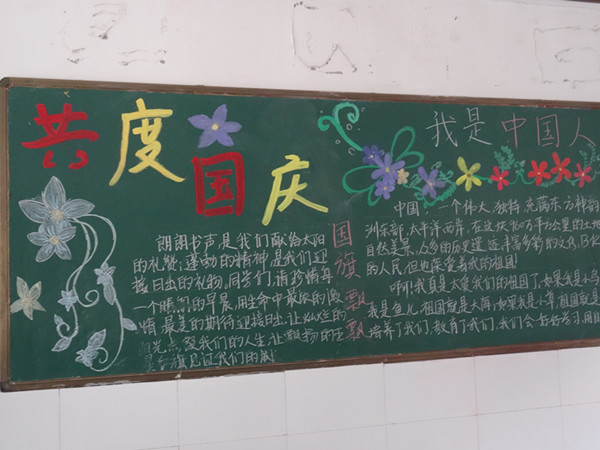 共度国庆
朗朗书声是我们献给太阳
的礼赞;蓬勃的精神是我们迎
接日出的礼物,同学们,请珍惜每
一个晴朗的早晨,用生命中最浓的激
情 最美的期待迎接日出,让灿烂的
阳光点亮我们的人生,让飘扬的五
星红旗见证我们的
国旗飘飘
我是中国人
中国,一个伟大,独特,充满东方神韵
洲东部,太平洋西岸,在这块960万平方公里的土地
自然美景
的人民,但也荣誉着我的祖国!
啊!我真是太爱我们的祖国了,如果我是小鸟
我是鱼儿,祖国就是大海;如果我是小草,祖国就是
培养了我们,教育了我们,我们会好好学习,用自